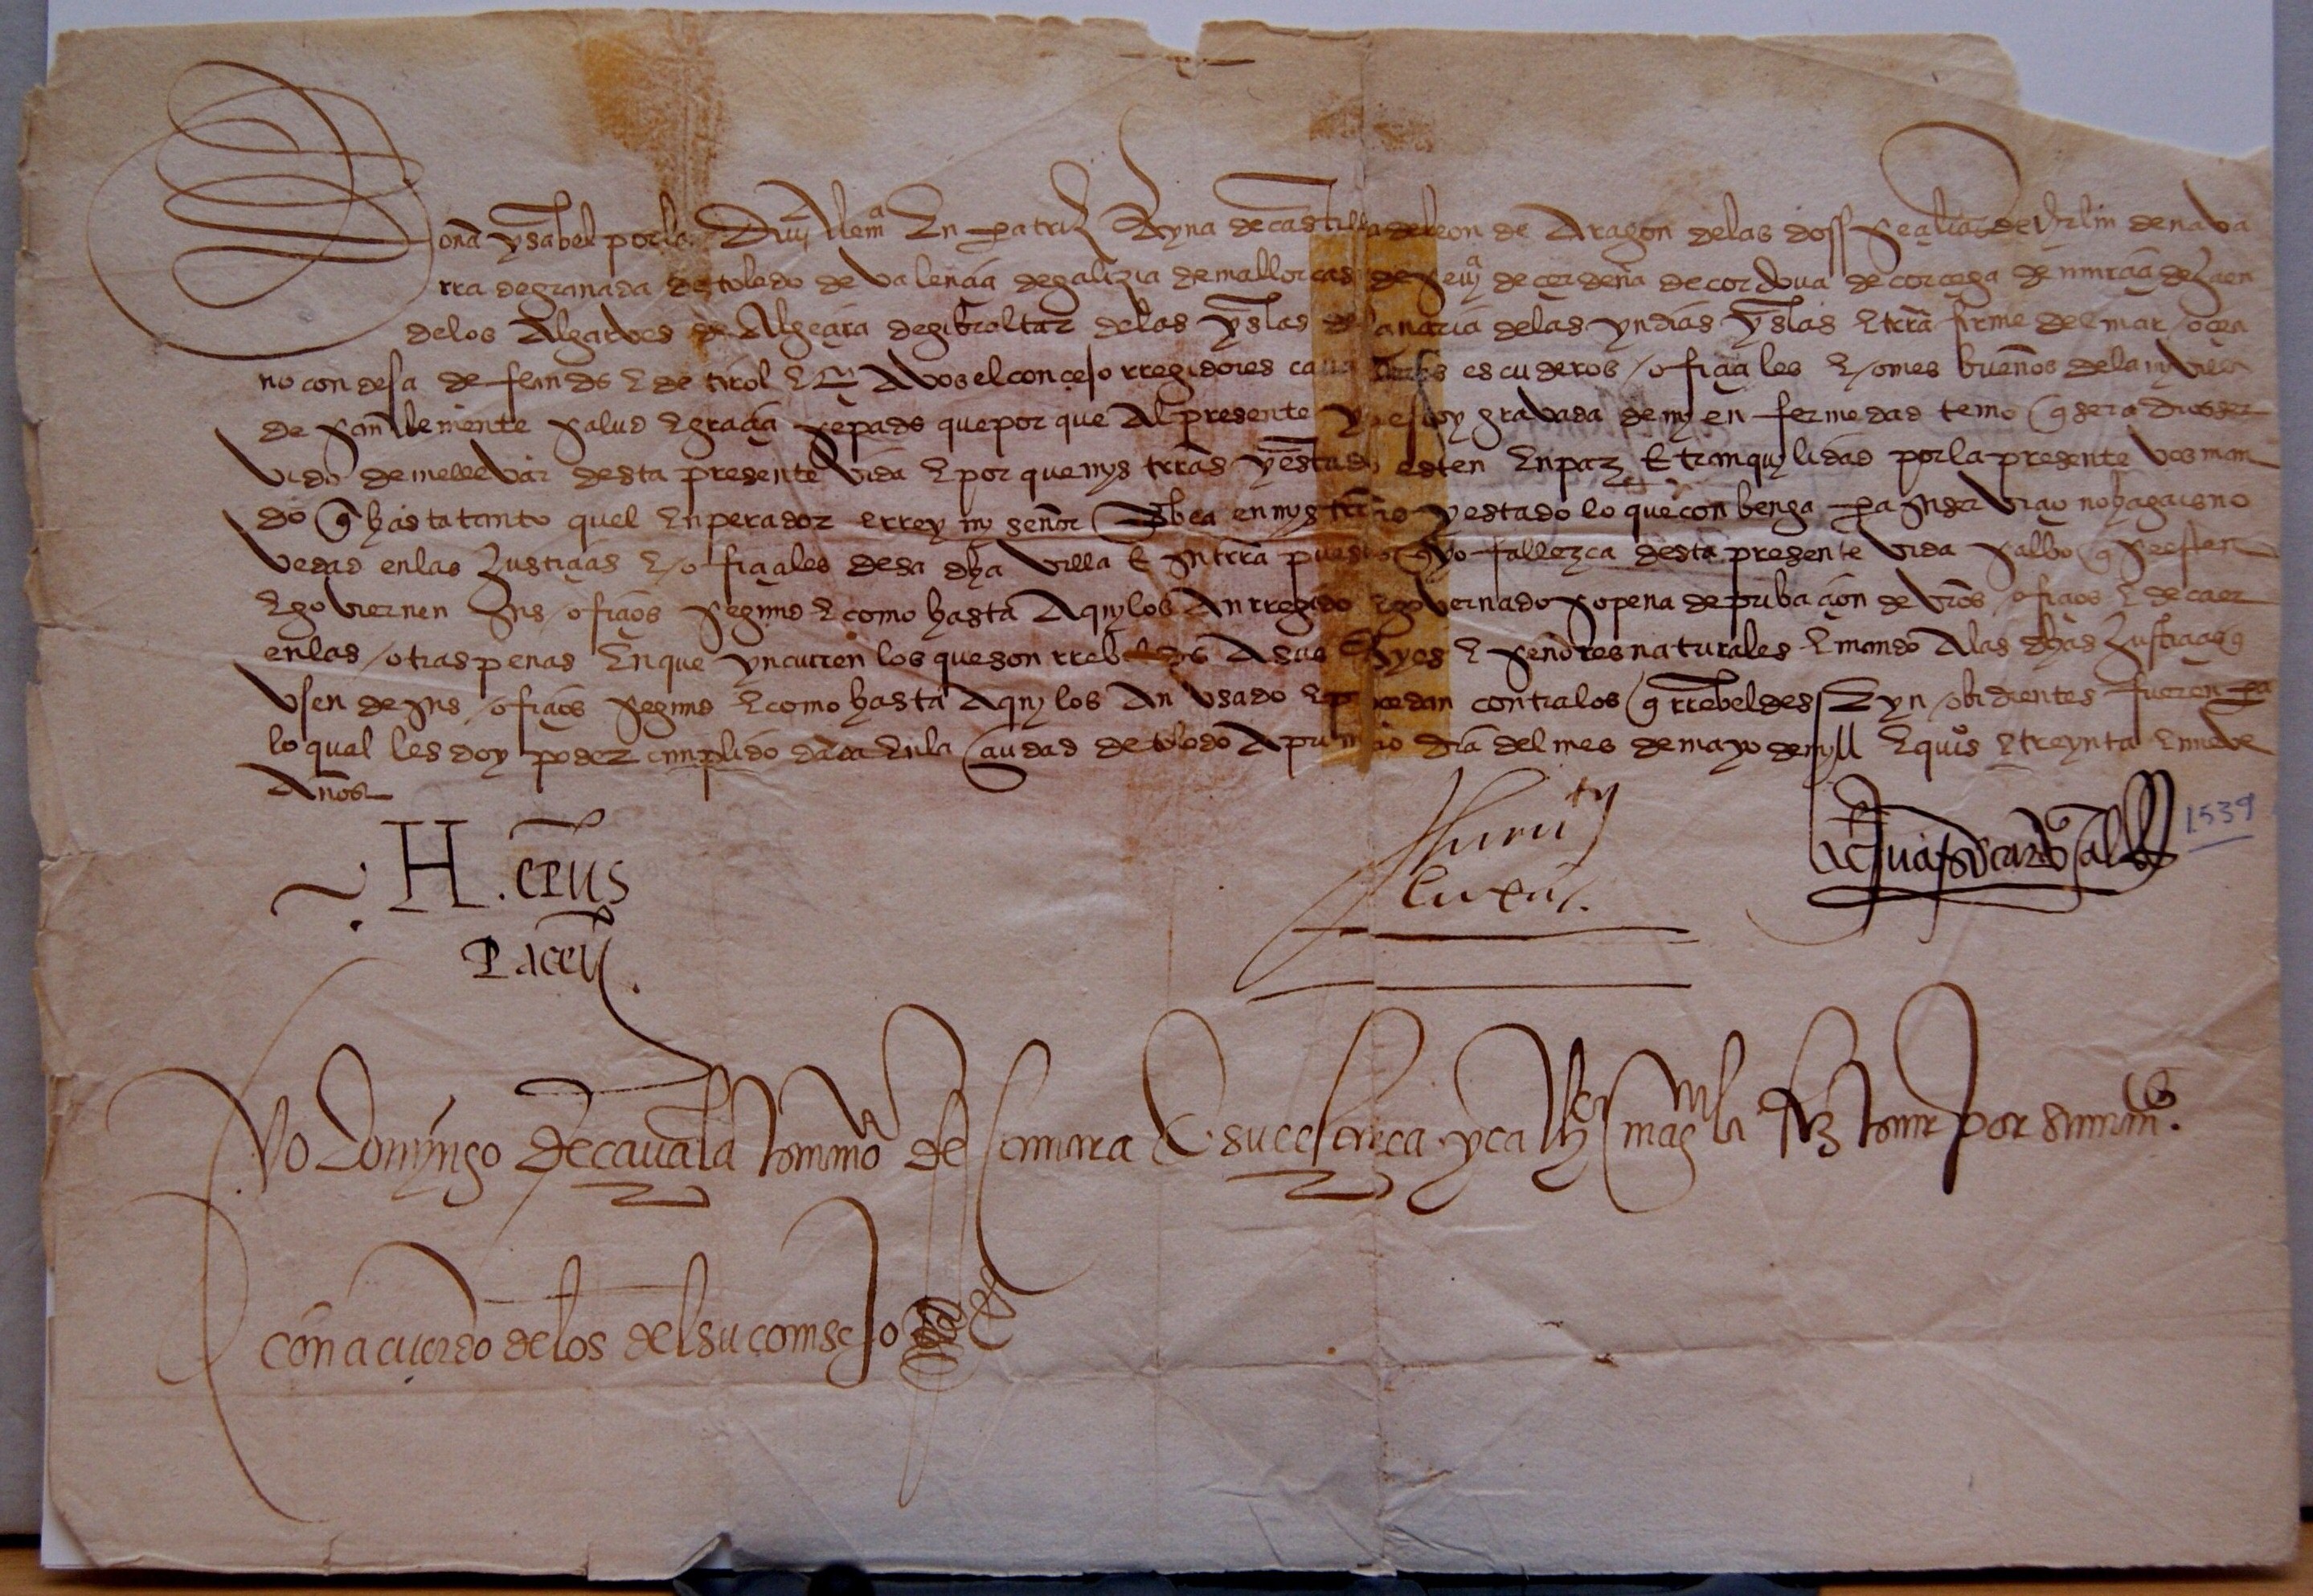 Doña ysabel por la Divi Clemª Enperatriz Reyna de castilla de leon de Aragon delas doss secilias de iherlm de nava
rra de granada de toledo de valençia de galizia de mallorcas de sevª de çerdeña de cordova de corcega de murçia de Jaen
delos Algarves de Algezira de gibraltar delas yslas de canaria delas yndias yslas E trra firme del mar oçea
no condesa de flands E de tirol Etc A vos el conçejo rregidores cavalleros escuderos ofiçiales E omes buenos dela my villa
de san clemente salud E graçia sepads que por que Al presente yo estoy gravada de my enfermedad temo q sera dios ser
vido de me llevar desta presente vida E por que mys trras y estados esten En paz E tranquylidad por la presente vos man
do q hasta tanto quel Enperador E rrey my señor probea en mys trras y estado lo que conbenga pa su serviçio no hagais no
vedad en las Justiçias E ofiçiales desa dha villa E su trra puesto q yo fallezca desta presente vida salbo q se esten
E goviernen sus ofiçios segund E como hasta Aquy los An rregido E governado so pena de pribaçion de vros ofiçios E de caer
en las otras penas En que yncurren los que son rrebeldes A sus Reyes E señores naturales E mando A las dhas Justiçias q
Usen de sus ofiçios segund E como hasta Aquy los An Usado E proçedan contra los q rrebeldes E yn obidientes fueren pa
lo qual les doy poder cunplido dada En la çiudad de toledo A primero dia del mes de mayo de myll E quis E treynta E nueve
Años
H. epus
Pacen
1539
Yo Domyngo de çavala de camara de su ces y ca por su man
con acuerdo de los del su consejo